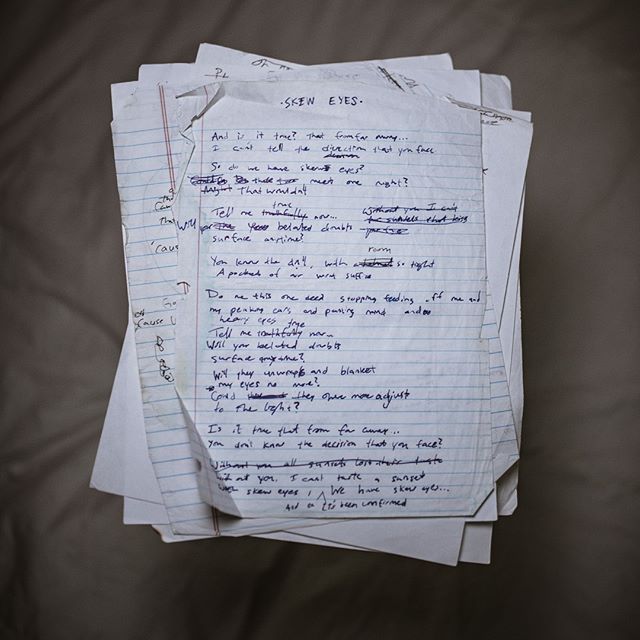 ·SKEW EYES·
And is it true? that from far away...
I cant tell the direction that you face
decision
So do we have skew eyes?
meet one night?
That wouldn't
true
Tell me truthfully now...
Without you I cant
Will your belated doubts
surface anytime?
room
You know the drill, with so tight
A pocket of air wont suffice
Do me this one deed stopping feeding off me and
my peaking ears and passing mind. and
heavy eyes
true
Tell me truthfully now...
Will your belated doubts
surface anytime?
Will they unwrap and blanket
my eyes no more?
Could they once more adjust
to the light?
Is it true that from far away..
You dont know the decision that you face?
Without you all sunsets lost their taste
Without you, I cant taste a sunset
skew eyes, We have skew eyes...
And its been confirmed
'Cause
'Cause